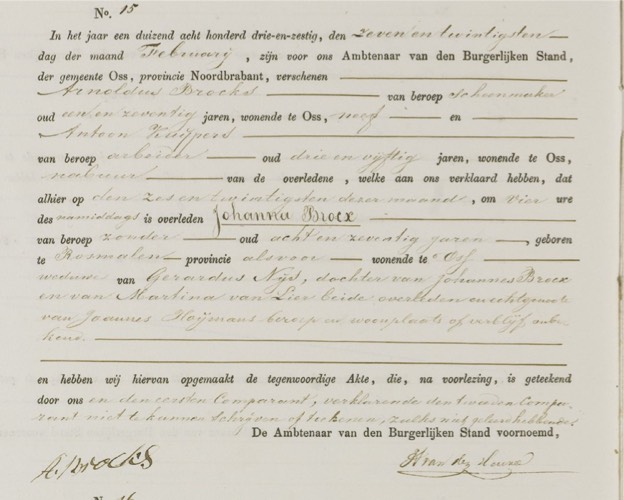 No. 15
In het jaar een duizend acht honderd drie-en-zestig, den zeven en twintigsten
dag der maand Februarij, zijn voor ons Ambtenaar van den Burgerlijken Stand,
der gemeente Oss, provincie Noordbrabant, verschenen
Arnoldus Brocks van beroep schoenmaker
oud een en zeventig jaren, wonende te Oss, neef en
Antoon Kuijpers
van beroep arbeider oud drie en vijftig jaren, wonende te Oss,
nabuur van de overledene, welke aan ons verklaard hebben, dat
alhier op den zes en twintigsten dezer maand, om vier ure
des namiddags is overleden Johanna Brocx
van beroep zonder oud acht en zeventig jaren, geboren
te Rosmalen provincie alsvoor wonende te Oss
weduwe van Gerardus Nijs, dochter van Johannes Brocx
en van Martina van Lier beide overleden en echtgenoot
van Joannes Hoijmans beroep en woonplaats of verblijf onbe-
kend.
en hebben wij hiervan opgemaakt de tegenwoordige Akte, die, na voorlezing, is geteekend
door ons en den eersten Comparant, verklarende den tweeden Compa-
rant niet te kunnen schrijven of teekenen, zulks niet geleerd hebbende
De Ambtenaar van den Burgerlijken Stand voornoemd,
A. Brocks
No. 16